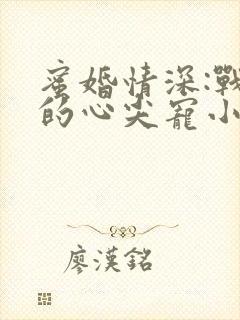 蜜婚情深:戰
的心尖寵小
廖漢銘